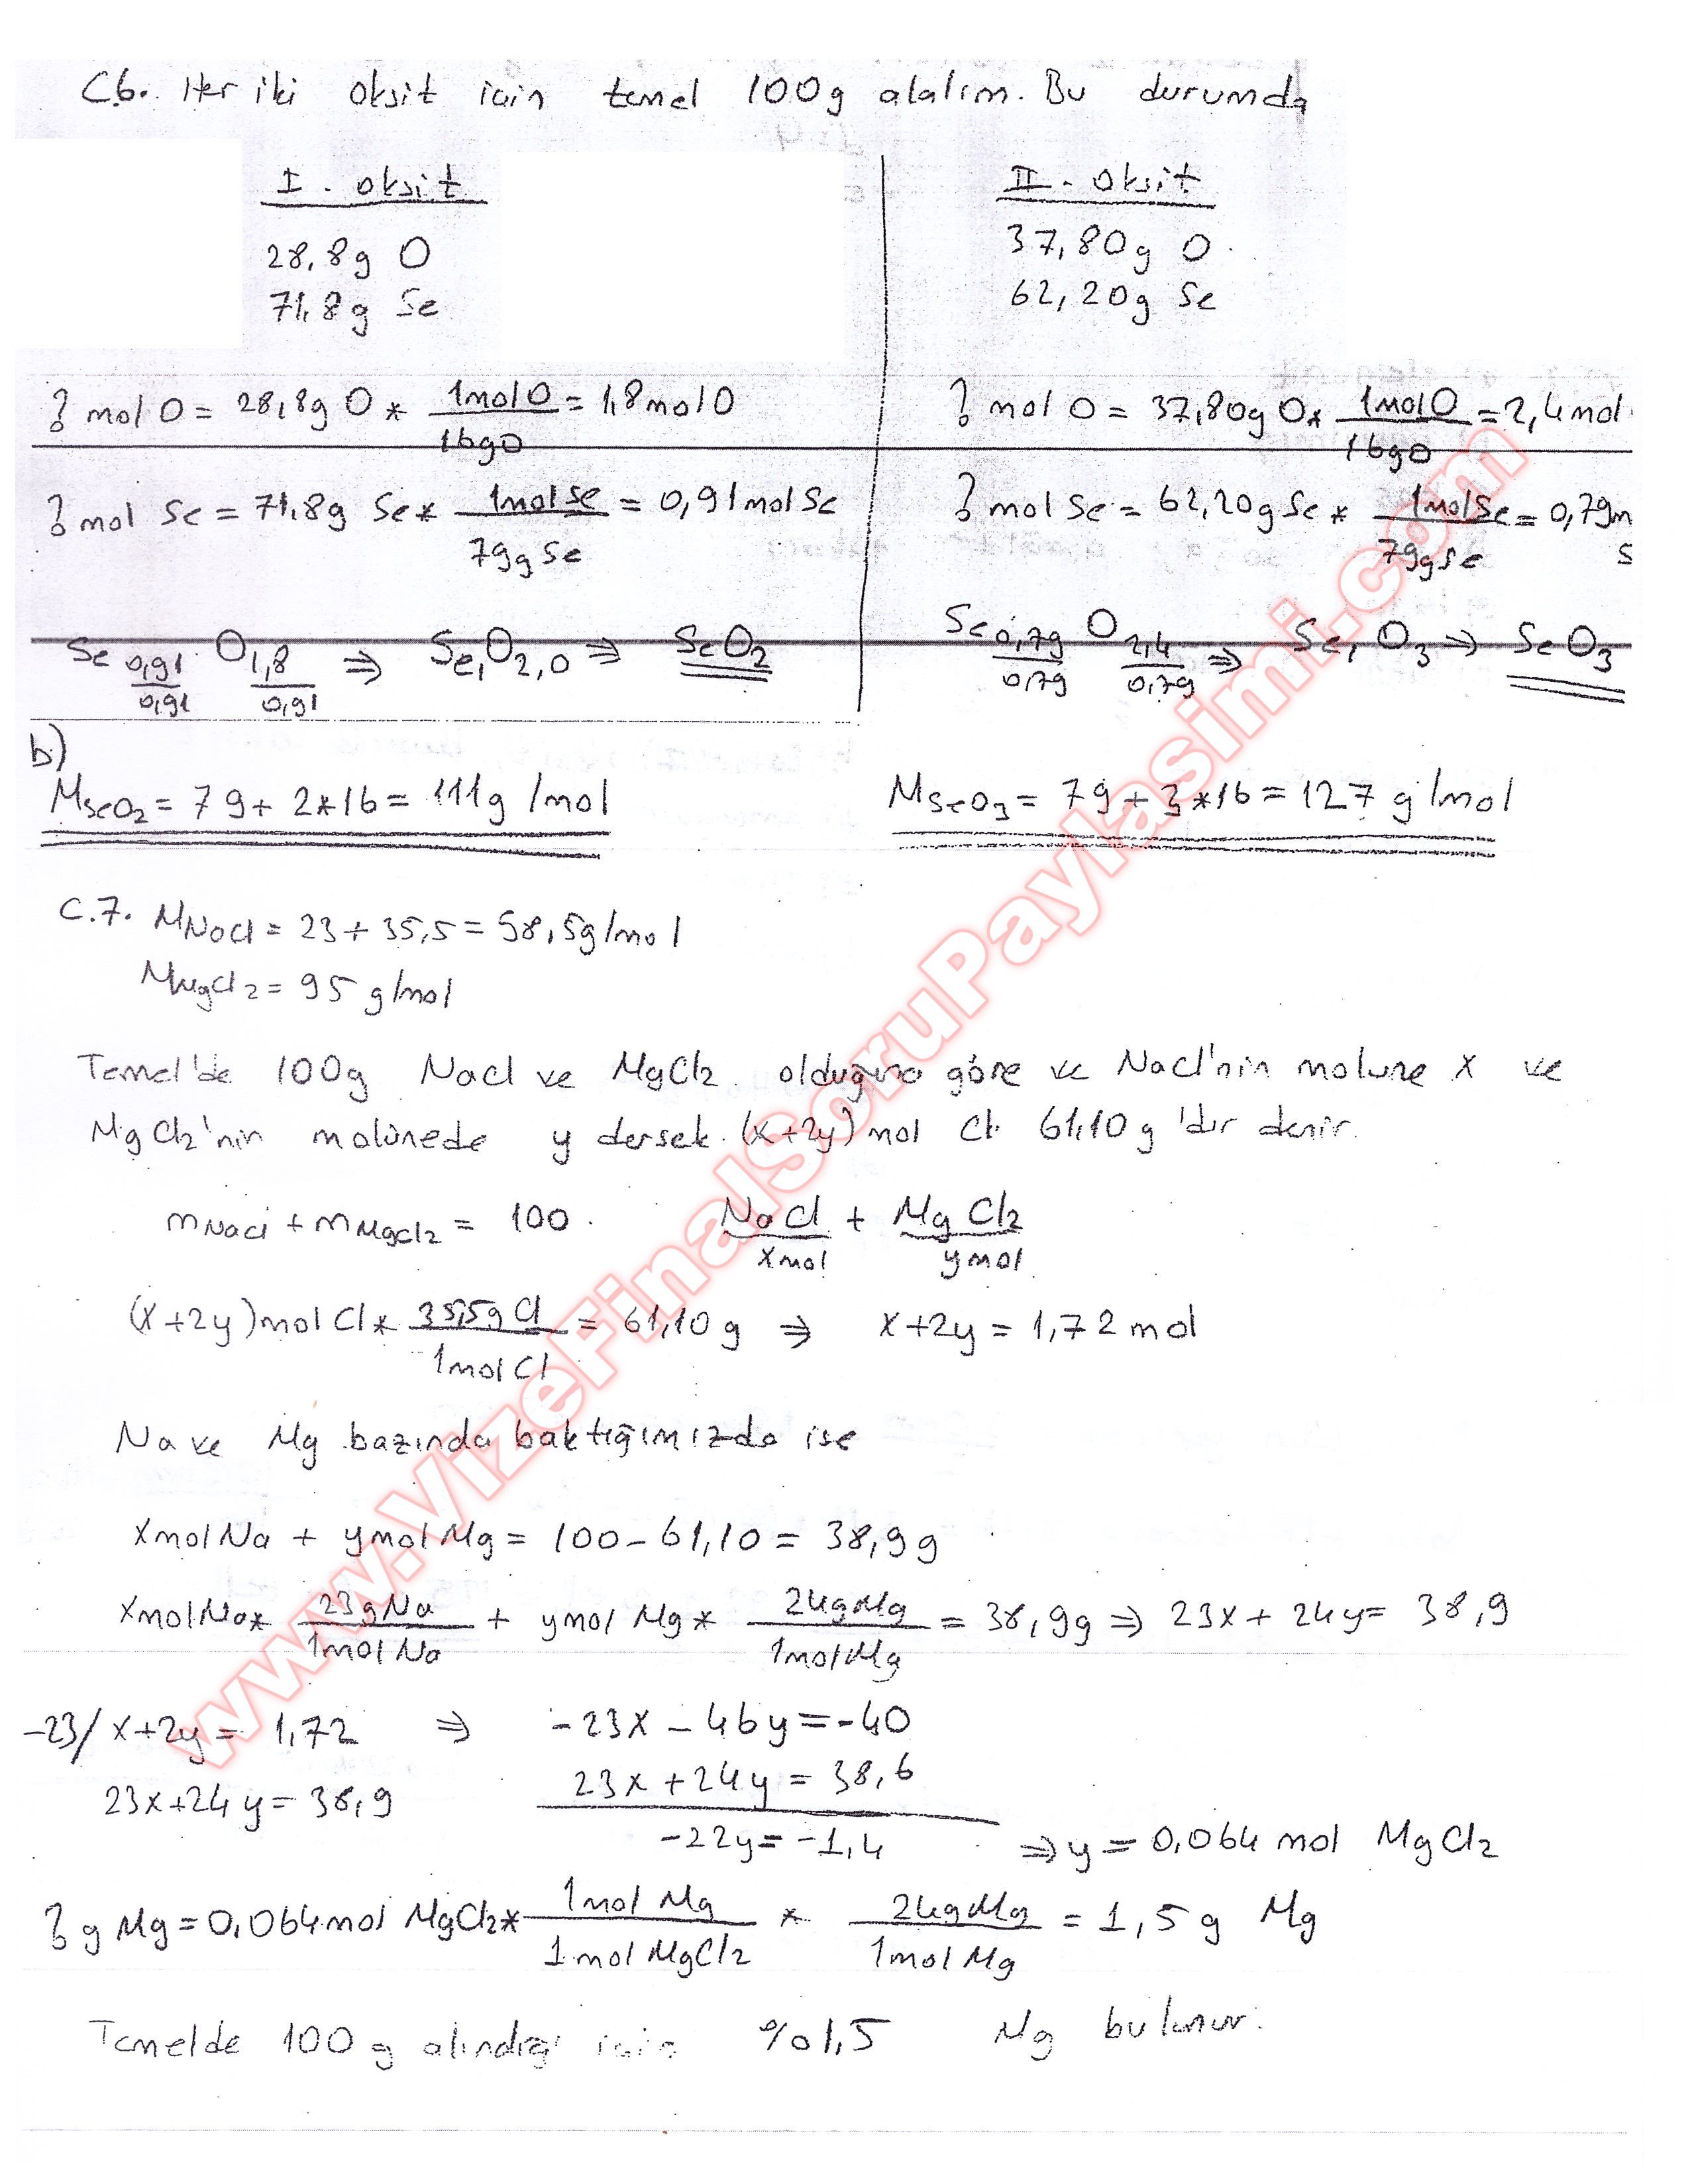 C6. Her iki oksit için temel 100g alalım. Bu durumda
I - oksit
28,8g O
71,8g Se
II - oksit
37,80g O
62,20g Se
? mol O = 28,8g O * 1mol O / 16g O = 1,8 mol O
? mol Se = 71,8g Se * 1mol Se / 79g Se = 0,91 mol Se
Se 0,91/0,91 O 1,8/0,91 ⇒ Se1O2,0 ⇒ SeO2
? mol O = 37,80g O * 1mol O / 16g O = 2,4 mol
? mol Se = 62,20g Se * 1mol Se / 79g Se = 0,79m
S
Se 0,79/0,79 O 2,4/0,79 ⇒ Se1O3 ⇒ SeO3
b)
MSeO2 = 79 + 2*16 = 111g /mol
MSeO3 = 79 + 3*16 = 127 g/mol
C.7. MNaCl = 23 + 35,5 = 58,5g/mol
MMgCl2 = 95 g/mol
Temel'de 100g NaCl ve MgCl2 olduğuna göre ve NaCl'nin molüne x ve
MgCl2'nin molünede y dersek (x+2y) mol Cl 61,10 g 'dır denir.
mNaCl + mMgCl2 = 100. NaCl + MgCl2
xmol ymol
(x+2y) mol Cl * 35,5g Cl / 1mol Cl = 61,10 g ⇒ x+2y = 1,72 mol
Na ve Mg bazında baktığımızda ise
xmol Na + ymol Mg = 100 - 61,10 = 38,9 g
xmol Na * 23g Na / 1mol Na + ymol Mg * 24g Mg / 1mol Mg = 38,9g ⇒ 23x + 24y = 38,9
-23/ x+2y = 1,72 ⇒ -23x - 46y = -40
23x+24y = 38,9 23x + 24y = 38,6
-22y = -1,4 ⇒ y = 0,064 mol MgCl2
? g Mg = 0,064 mol MgCl2 * 1mol Mg / 1mol MgCl2 * 24g Mg / 1mol Mg = 1,5 g Mg
Temelde 100 g alındığı için %1,5 Mg bulunur.
www.VizeFinalSoruPaylasimi.com